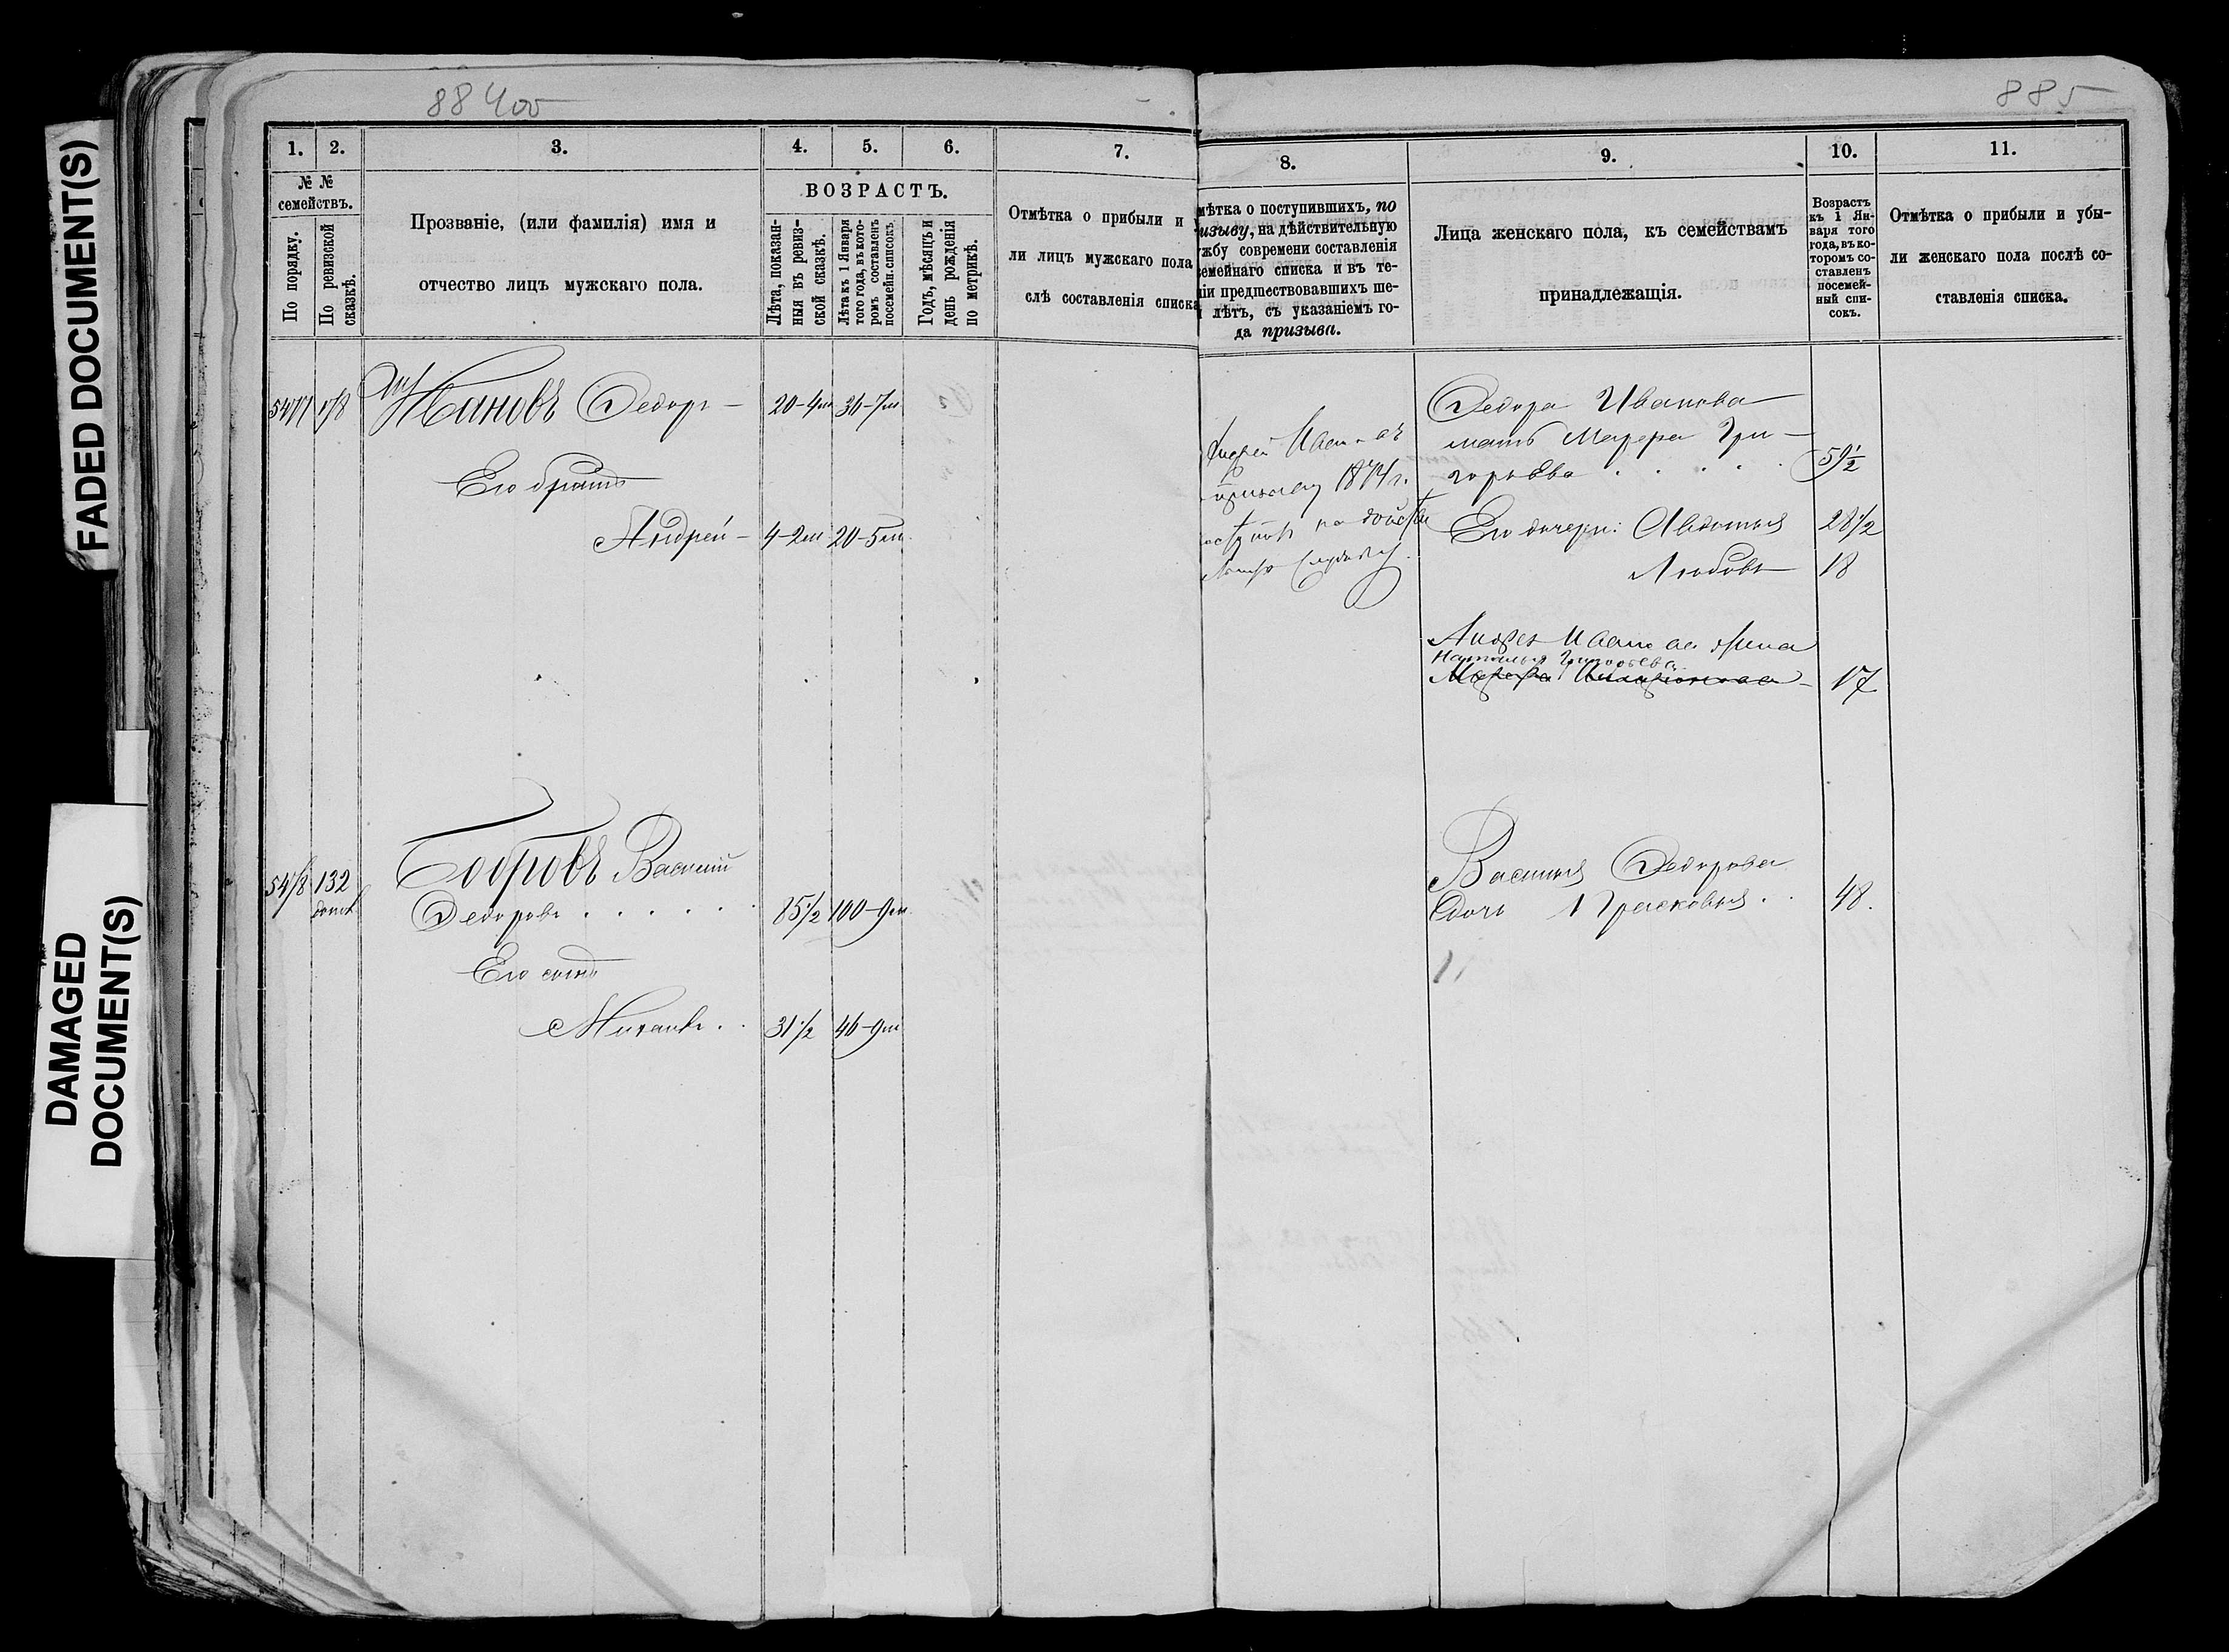 FADED DOCUMENT(S)
DAMAGED
DOCUMENT(S)
884об
885
1.
2.
3.
4.
5.
6.
7.
8.
9.
10.
11.
№ №
семействъ.
По порядку.
По ревизской
сказкѣ.
Прозваніе, (или фамилія) имя и
отчество лицъ мужскаго пола.
ВОЗРАСТЪ.
Лѣта, показан-
ныя въ ревиз-
ской сказкѣ.
Лѣта къ 1 Января
того года, въ кото-
ромъ составленъ
посемейн. списокъ.
Годъ, мѣсяцъ и
день рожденія
по метрикѣ.
Отмѣтка о прибыли и
ли лицъ мужскаго пола
слѣ составленія списка
мѣтка о поступившихъ, по
изыву, на дѣйствительную
жбу современи составленія
емейнаго списка и въ те-
іи предшествовавшихъ ше-
лѣтъ, съ указаніемъ го-
да призыва.
Лица женскаго пола, къ семействамъ
принадлежащія.
Возрастъ
къ 1 Ян-
варя того
года, въ ко-
торомъ со-
ставленъ
посемей-
ный спи-
сокъ.
Отмѣтка о прибыли и убы-
ли женскаго пола послѣ со-
ставленія списка.
Ивановъ Ѳедоръ
20-4м 36-7м
Его братъ
Андрей 4-2м 20-5м
Андрей Иван-въ
призыву 1874 г.
Ѳедора Иванова
мать Гри-
горьева 59½
Его дочери: Авдотья 28½
Любовь 18
Андрея Иванова жена
Наталья Григорьева 17
132
Бобровъ Василий
Ѳедоровъ 85½ 100-9м
Его сынъ
Михаилъ 31½ 46-9м
Василья Ѳедорова
дочь Прасковья 48.